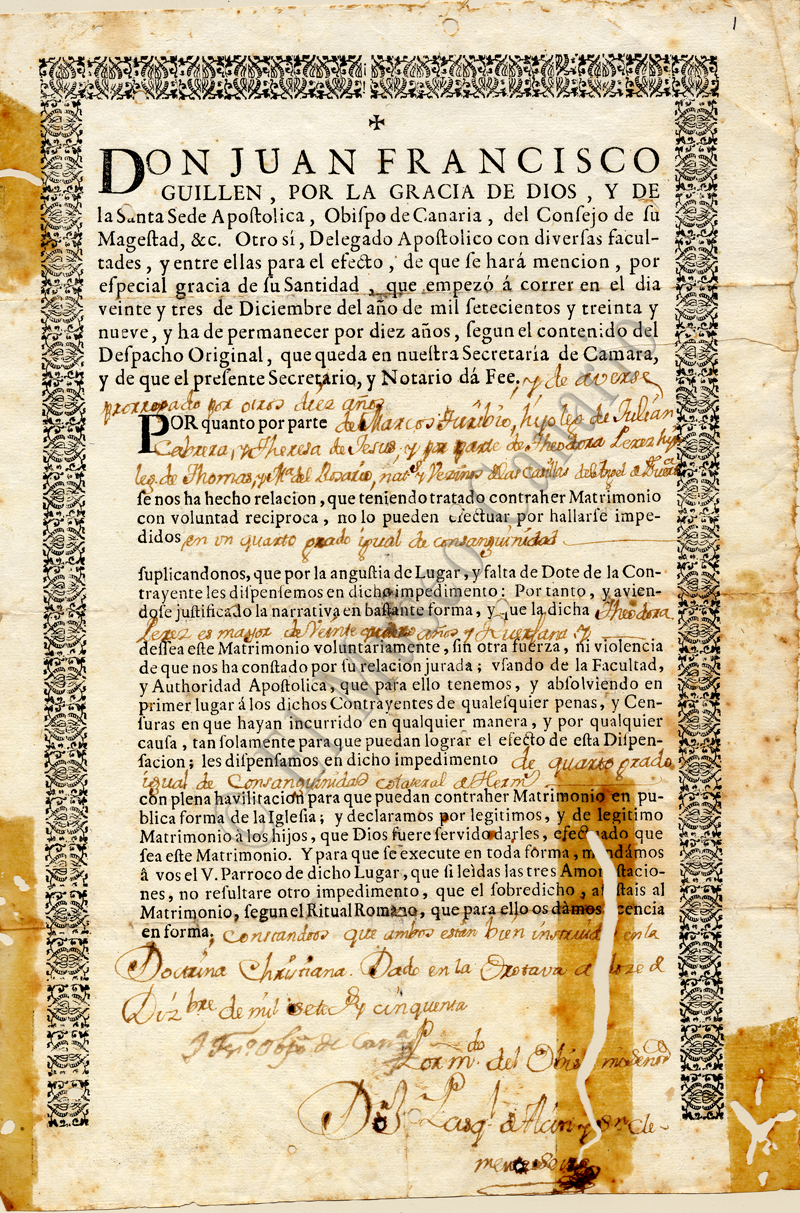 1
✠
DON JUAN FRANCISCO
GUILLEN, POR LA GRACIA DE DIOS, Y DE
la Santa Sede Apoſtolica, Obiſpo de Canaria, del Conſejo de ſu
Mageſtad, &c. Otro sí, Delegado Apoſtolico con diverſas facul-
tades, y entre ellas para el efecto, de que se hará mencion, por
eſpecial gracia de ſu Santidad, que empezó á correr en el dia
veinte y tres de Diciembre del año de mil ſetecientos y treinta y
nueve, y ha de permanecer por diez años, ſegun el contenido del
Deſpacho Original, que queda en nueſtra Secretaría de Camara,
y de que el preſente Secretario, y Notario dá Fee. y de averse
prorrogado por otros diez años
POR quanto por parte de Marcos Turibio, hijo leg de Julian
Cabrera, y Theresa de Jesus, y por parte de Theodora Perez hija
leg. de Thomas, y del Rosario, y Vezinos de
ſe nos ha hecho relacion, que teniendo tratado contraher Matrimonio
con voluntad reciproca, no lo pueden efectuar por hallarſe impe-
didos en vn quarto grado igual de consanguinidad
ſuplicandonos, que por la anguſtia de Lugar, y falta de Dote de la Con-
trayente les diſpenſemos en dicho impedimento: Por tanto, y avien-
doſe juſtificado la narrativa en baſtante forma, y que la dicha Theodora
Perez es maior de Veinte quatro años y Huerfana y
deſſea eſte Matrimonio voluntariamente, ſin otra fuerza, ni violencia
de que nos ha conſtado por ſu relacion jurada; vſando de la Facultad,
y Authoridad Apoſtolica, que para ello tenemos, y abſolviendo en
primer lugar á los dichos Contrayentes de qualeſquier penas, y Cen-
ſuras en que hayan incurrido en qualquier manera, y por qualquier
cauſa, tan ſolamente para que puedan lograr el efecto de eſta Diſpen-
ſacion; les diſpenſamos en dicho impedimento de quarto grado
igual de Consanguinidad colateral
con plena havilitacion para que puedan contraher Matrimonio en pu-
blica forma de la Igleſia; y declaramos por legitimos, y de legitimo
Matrimonio à los hijos, que Dios fuere ſervido darles, efectuado que
ſea eſte Matrimonio. Y para que ſe execute en toda forma, mandámos
á vos el V. Parroco de dicho Lugar, que ſi leìdas las tres Amoneſtacio-
nes, no reſultare otro impedimento, que el ſobredicho, aſiſtais al
Matrimonio, ſegun el Ritual Romano, que para ello os dámos licencia
en forma, Constandoos que ambos estan bien instruidos en la
Doctrina Christiana. Dado en la Orotava a doze de
Diz.bre de mil Setec.s y cinquenta
J Fr.co Obpo de Canaria
Por m.do del Obispo mi Señor
D.n Pasq.l